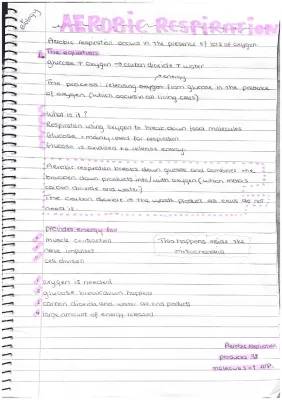 Biology
AEROBIC RESPIRATION
Aerobic respiration occurs in the presence of lots of oxygen
The equation:
glucose + oxygen → carbon dioxide + water
→ energy
The process: releasing oxygen from glucose in the presence
of oxygen (which occurs in all living cells)
What is it?
Respiration using oxygen to break down food molecules
Glucose - mainly used for respiration
Glucose is oxidised to release energy
Aerobic respiration breaks down glucose and combines the
broken down products into/with oxygen (which makes
carbon dioxide and water)
The carbon dioxide is the waste product as cells do not
need it
provides energy for
muscle contraction
nerve impulses
cell division
This happens inside the
mitochondria
oxygen is needed
glucose breakdown happens
carbon dioxide and water as end products
large amount of energy released
Aerobic respiration
produces 38
molecules of ATP.